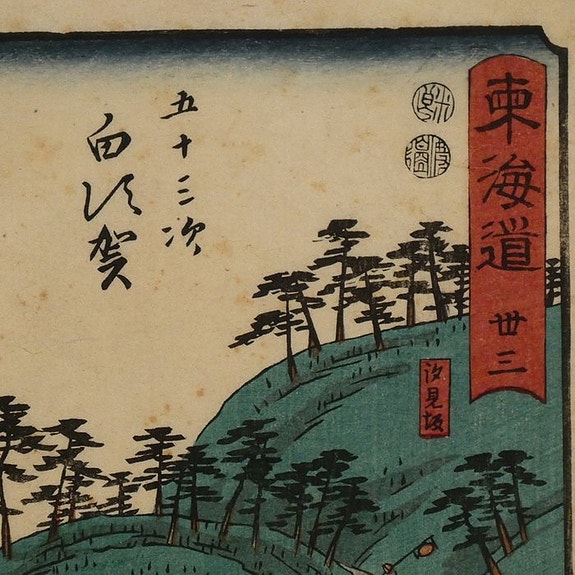 東海道 丗三
五十三次
白須賀
汐見坂